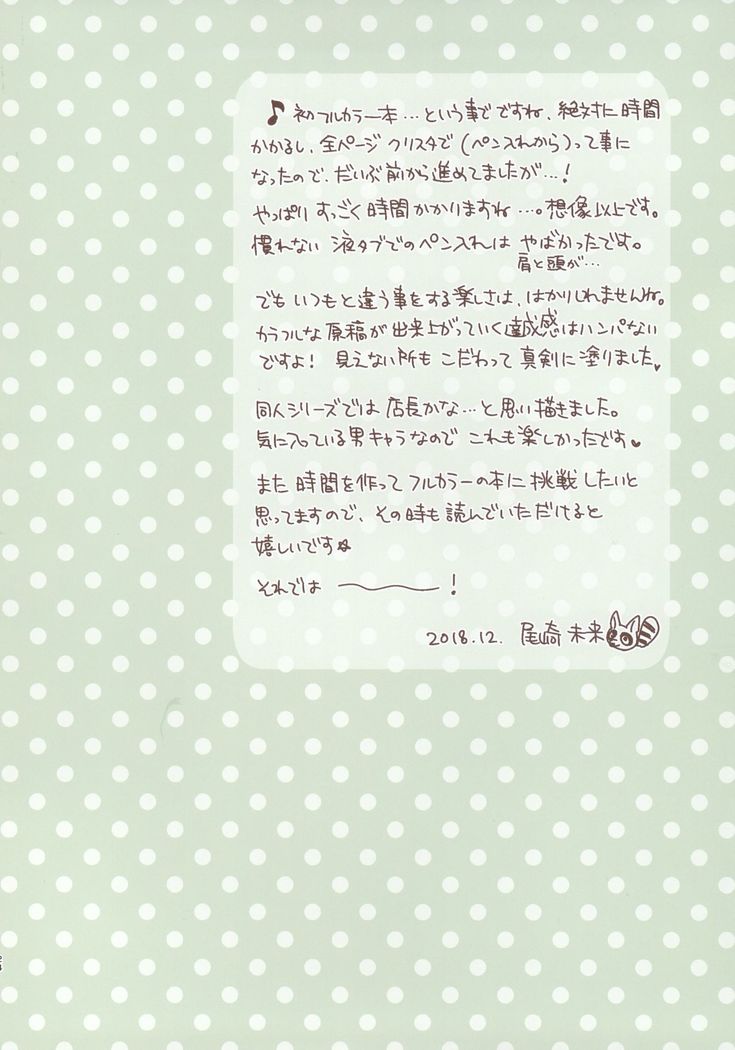 ♪ 初フルカラー本…という事でですね、絶対に時間
かかるし、全ページ クリスタで(ペン入れから)って事に
なったので、だいぶ前から進めてましたが…!
やっぱり すっごく時間かかりますね…。想像以上です。
慣れない 液タブでのペン入れは やばかったです。
肩と頭が…
でも いつもと違う事をする楽しさは、はかりしれませんね。
カラフルな 原稿が 出来上がっていく達成感はハンパない
ですよ! 見えない所も こだわって 真剣に塗りました♥
同人シリーズでは 店長かな…と思い描きました。
気に入っている男キャラなので これも楽しかったです♥
また 時間を作って フルカラーの本に 挑戦したいと
思ってますので、その時も 読んでいただけると
嬉しいです☆
それでは 〜〜〜!
2018.12. 尾崎 未来